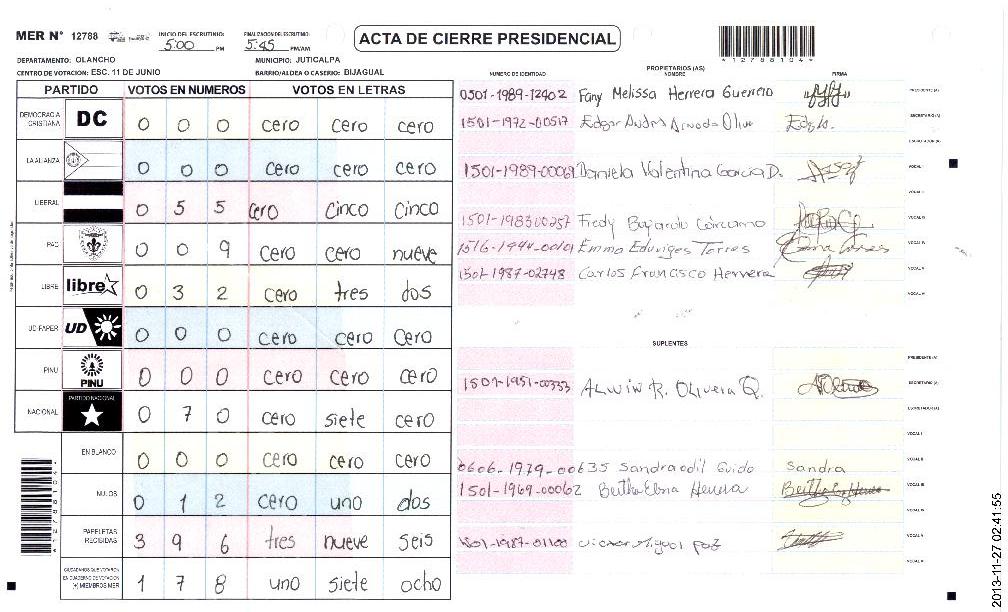 MER N° 12788
INICIO DEL ESCRUTINIO: 5:00 PM
FINALIZACION DEL ESCRUTINIO: 5:45 PM/AM
ACTA DE CIERRE PRESIDENCIAL
*12788104*
DEPARTAMENTO: OLANCHO
MUNICIPIO: JUTICALPA
CENTRO DE VOTACION: ESC. 11 DE JUNIO
BARRIO/ALDEA O CASERIO: BIJAGUAL
PARTIDO VOTOS EN NUMEROS VOTOS EN LETRAS
DEMOCRACIA CRISTIANA DC 0 0 0 cero cero cero
LA ALIANZA 0 0 0 cero cero cero
LIBERAL 0 5 5 cero cinco cinco
PAC 0 0 9 cero cero nueve
LIBRE libre 0 3 2 cero tres dos
UD-FAPER UD 0 0 0 cero cero cero
PINU PINU 0 0 0 cero cero cero
NACIONAL PARTIDO NACIONAL 0 7 0 cero siete cero
EN BLANCO 0 0 0 cero cero cero
NULOS 0 1 2 cero uno dos
PAPELETAS RECIBIDAS 3 9 6 tres nueve seis
CIUDADANOS QUE VOTARON EN CUADERNO DE VOTACION (+) MIEMBROS MER 1 7 8 uno siete ocho
PROPIETARIOS (AS)
NUMERO DE IDENTIDAD NOMBRE FIRMA
0501-1989-12402 Fany Melissa Herrera Guerrero PRESIDENTE (A)
1501-1972-00517 Edgar SECRETARIO (A)
ESCRUTADOR (A)
1501-1989-00069 Daniela Valentina Garcia D. VOCAL I
VOCAL II
1501-1983 00257 Fredy Bajardo Cárcamo VOCAL III
Emma Eduviges Torres VOCAL IV
1501-1987-02748 Carlos Francisco Herrera VOCAL V
VOCAL VI
SUPLENTES
PRESIDENTE (A)
1501-1951-00353 ALWIN R. OLIVERA Q. SECRETARIO (A)
ESCRUTADOR (A)
VOCAL I
0606-1979-00635 Sandra odil Guido Sandra VOCAL II
1501-1969-00062 Bertha Elena Herrera VOCAL III
VOCAL IV
1501-1987-01100 Victor Miguel Paz VOCAL V
VOCAL VI
2013-11-27 02:41:55